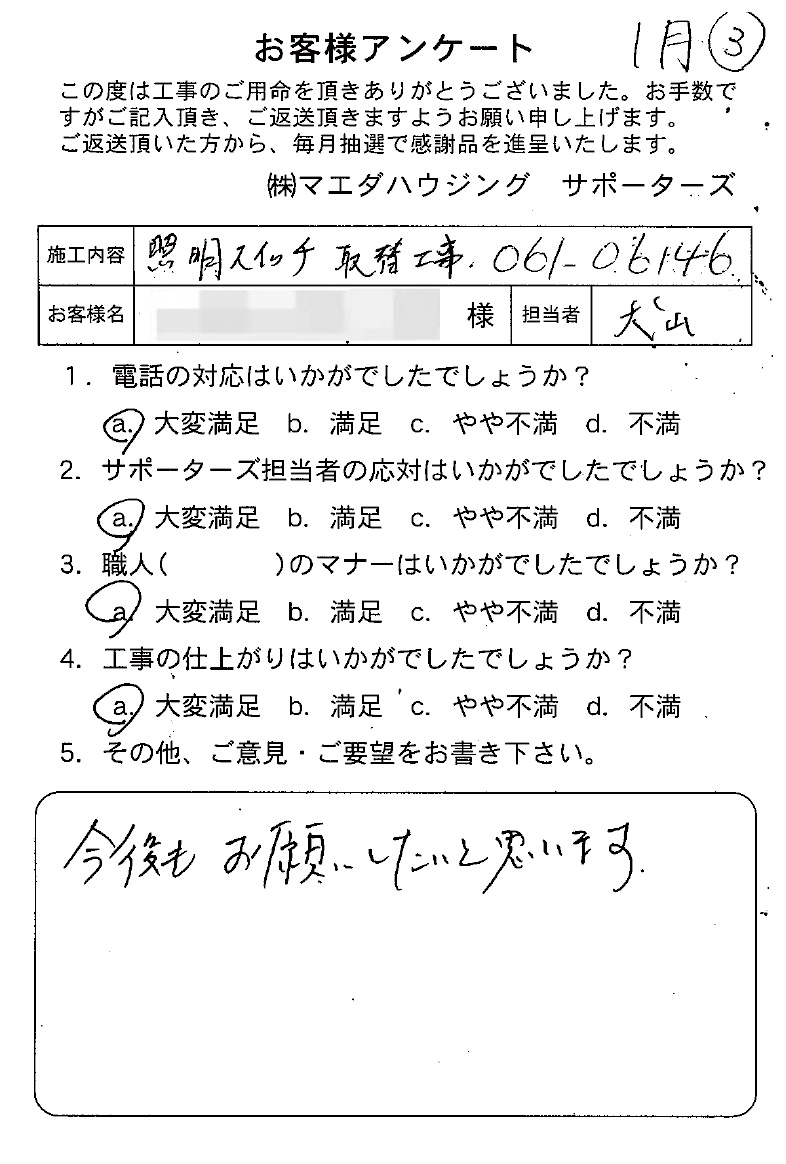 お客様アンケート 1月③
この度は工事のご用命を頂きありがとうございました。お手数で
すがご記入頂き、ご返送頂きますようお願い申し上げます。
ご返送頂いた方から、毎月抽選で感謝品を進呈いたします。
㈱マエダハウジング サポーターズ
施工内容 照明スイッチ取替工事. 061-06146
お客様名 様 担当者 大山
1. 電話の対応はいかがでしたでしょうか?
a. 大変満足 b. 満足 c. やや不満 d. 不満
2. サポーターズ担当者の応対はいかがでしたでしょうか?
a. 大変満足 b. 満足 c. やや不満 d. 不満
3. 職人( )のマナーはいかがでしたでしょうか?
a. 大変満足 b. 満足 c. やや不満 d. 不満
4. 工事の仕上がりはいかがでしたでしょうか?
a. 大変満足 b. 満足 c. やや不満 d. 不満
5. その他、ご意見・ご要望をお書き下さい。
今後もお願いしたいと思います.